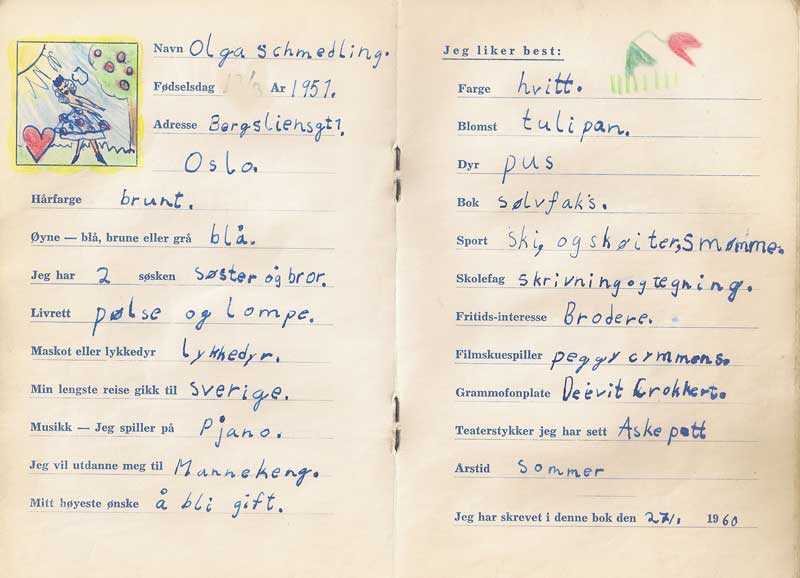 Navn Olga schmedling.
Fødselsdag År 1951.
Adresse Bergsliensgt1,
Oslo.
Hårfarge brunt.
Øyne — blå, brune eller grå blå.
Jeg har 2 søsken søster og bror.
Livrett pølse og lompe.
Maskot eller lykkedyr lykkedyr.
Min lengste reise gikk til sverige.
Musikk — Jeg spiller på Pjano.
Jeg vil utdanne meg til Mannekeng.
Mitt høyeste ønske å bli gift.
Jeg liker best:
Farge hvitt.
Blomst tulipan.
Dyr pus
Bok sølvfaks.
Sport ski, og skøiter, smømme.
Skolefag skrivning og tegning.
Fritids-interesse Brodere.
Filmskuespiller peggy cymmens.
Grammofonplate Deevit Crokkert.
Teaterstykker jeg har sett Askepott
Årstid sommer
Jeg har skrevet i denne bok den 27/1 1960